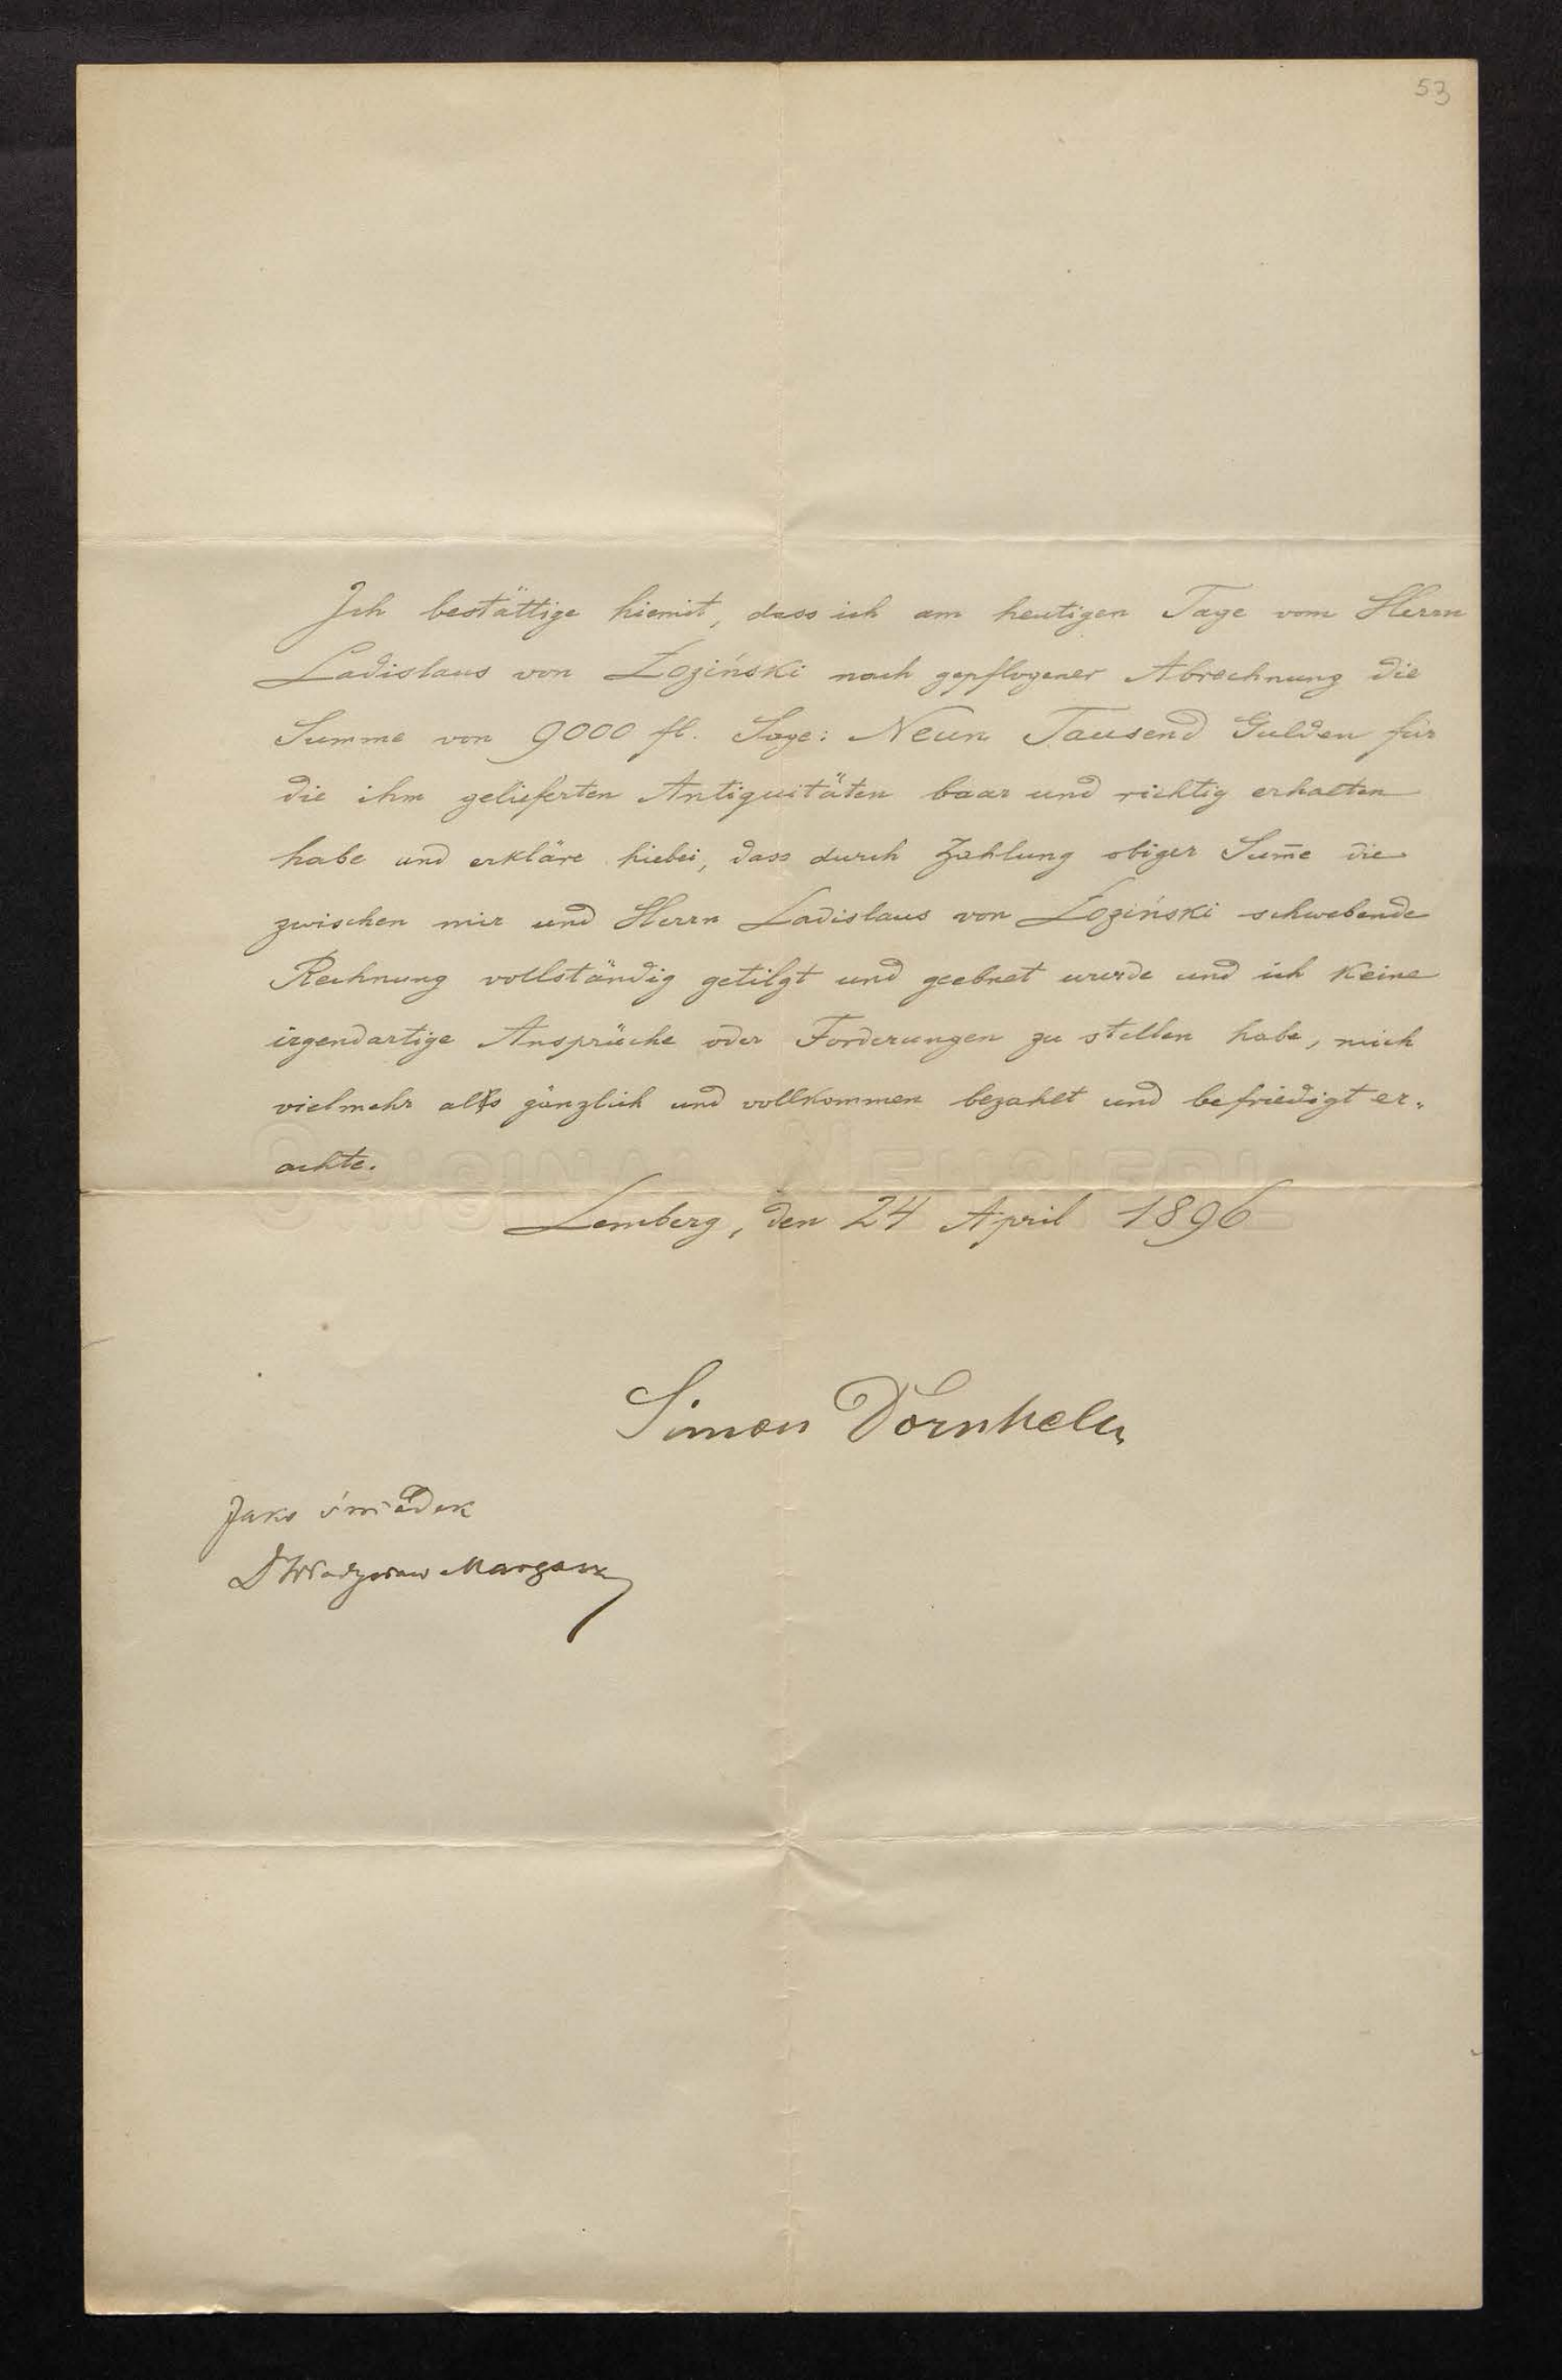 53
Ich bestättige hiemit, dass ich am heutigen Tage vom Herrn
Ladislaus von Łoziński nach gepflogener Abrechnung die
Summe von 9000 fl. Sage: Neun Tausend Gulden für
die ihm gelieferten Antiquitäten baar und richtig erhalten
habe und erkläre hiebei, dass durch Zahlung obiger Sum̄e die
zwischen mir und Herrn Ladislaus von Łoziński schwebende
Rechnung vollständig getilgt und geebnet wurde und ich keine
irgendartige Ansprüche oder Forderungen zu stellen habe, mich
vielmehr als gänzlich und vollkommen bezahlt und befriedigt er-
achte.
Lemberg, den 24 April 1896
Simon
Jako świadek
Dr Władysław